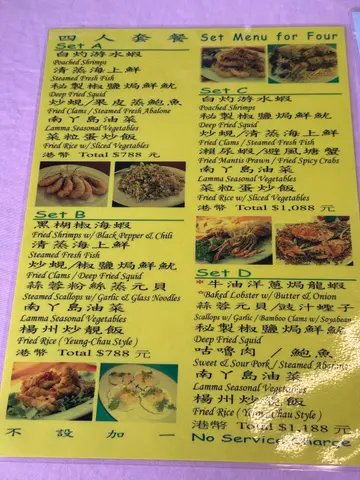 四人套餐 Set Menu for Four
Set A
白灼游水蝦
Poached Shrimps
清蒸海上鮮
Steamed Fresh Fish
秘製椒鹽焗鮮魷
Deep Fried Squid
炒蜆/果皮蒸鮑魚
Fried Clams / Steamed Fresh Abalone
南丫島油菜
Lamma Seasonal Vegetables
菜粒蛋炒飯
Fried Rice w/ Sliced Vegetables
港幣 Total $788 元
Set B
黑椒椒海蝦
Fried Shrimps w/ Black Pepper & Chili
清蒸海上鮮
Steamed Fresh Fish
炒蜆/椒鹽焗鮮魷
Fried Clams / Deep Fried Squid
蒜蓉粉絲蒸元貝
Steamed Scallops w/ Garlic & Glass Noodles
南丫島油菜
Lamma Seasonal Vegetables
楊州炒靚飯
Fried Rice ( Yeung-Chau Style )
港幣 Total $788 元
Set C
白灼游水蝦
Poached Shrimps
秘製椒鹽焗鮮魷
Deep Fried Squid
炒蜆/清蒸海上鮮
Fried Clams / Steamed Fresh Fish
瀨尿蝦/避風塘蟹
Fried Mantis Prawn / Fried Spicy Crabs
南丫島油菜
Lamma Seasonal Vegetables
菜粒蛋炒飯
Fried Rice w/ Sliced Vegetables
港幣 Total $1,088 元
Set D
*牛油洋蔥焗龍蝦
*Baked Lobster w/ Butter & Onion
蒜蓉元貝/豉汁蟶子
Scallops w/ Garlic / Bamboo Clams w/ Soyabean
秘製椒鹽焗鮮魷
Deep Fried Squid
咕嚕肉/鮑魚
Sweet & Sour Pork / Steamed Abalone
南丫島油菜
Lamma Seasonal Vegetables
楊州炒靚飯
Fried Rice ( Yeung-Chau Style )
港幣 Total $1,188 元
不設加一 No Service Charge